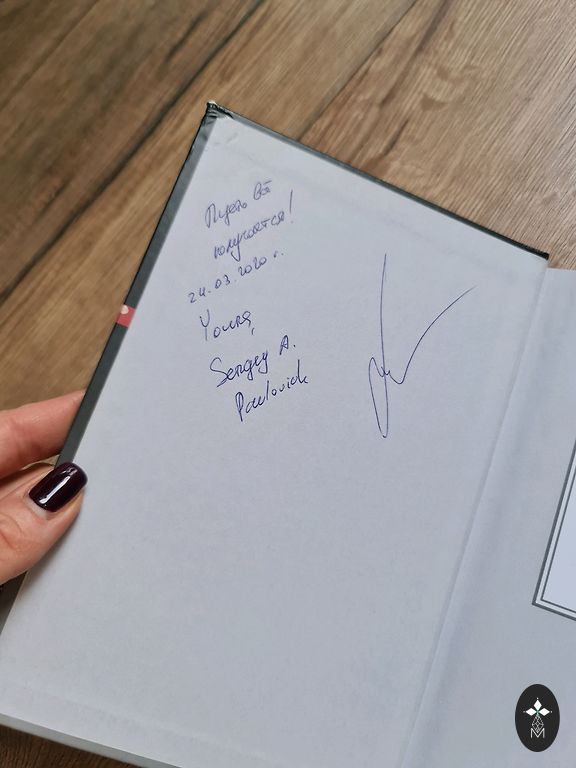 Пусть всё
получается!
24.03.2020 г.
Yours,
Sergey A.
Pavlovich